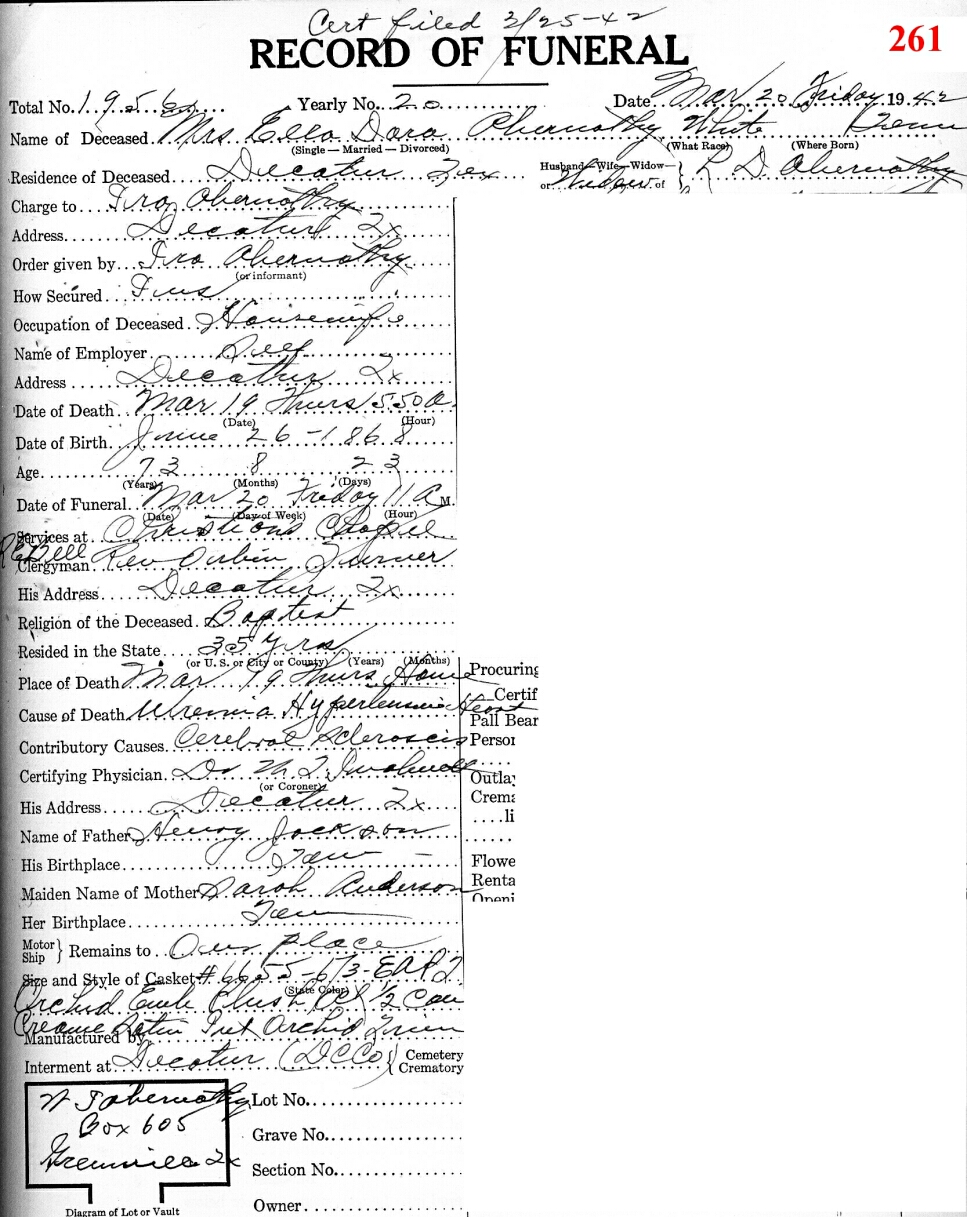 Cert filed 3/25-42
261
RECORD OF FUNERAL
Total No. 1956 Yearly No. 20 Date Mar 20 Friday 1942
Name of Deceased Mrs. Ella Dora Abernathy White Tenn
(Single — Married — Divorced) (What Race) (Where Born)
Residence of Deceased Decatur Tex Husband—Wife—Widow— or Widow of } L D Abernathy
Charge to Ira Abernathy
Address Decatur Tx
Order given by Ira Abernathy
(or informant)
How Secured Ins
Occupation of Deceased Housewife
Name of Employer Self
Address Decatur Tx
Date of Death Mar 19 Thurs 5:50 A.
(Date) (Hour)
Date of Birth June 26-1868
Age 73 8 23
(Years) (Months) (Days)
Date of Funeral Mar 20 Friday 11 A M.
(Date) (Day of Week) (Hour)
Services at Christians Chapel
Bell
Clergyman Rev Orbin Turner
His Address Decatur Tx
Religion of the Deceased Baptist
Resided in the State 35 yrs
(or U. S. or City or County) (Years) (Months)
Place of Death Mar 19 Thurs Home Procuring
Certif
Cause of Death Uremia Hypertensive Heart
Pall Bear
Contributory Causes Cerebral Sclerosis Person
Certifying Physician Dr M. T.
(or Coroner) Outlay
His Address Decatur Tx Crema
....li
Name of Father Henry Jackson
His Birthplace Tenn Flowe
Maiden Name of Mother Sarah Anderson Renta
Openi
Her Birthplace Tenn
Motor Ship } Remains to Our place
Size and Style of Casket # 6655-6/3-
(State Color)
Orchid Emb Plush 1/2 Cou
Creame Satin Int Orchid Trim
Manufactured by
Interment at Decatur (DCCo) { Cemetery Crematory
W T Abernathy
Box 605
Greenville Tx
Lot No.
Grave No.
Section No.
Owner
Diagram of Lot or Vault